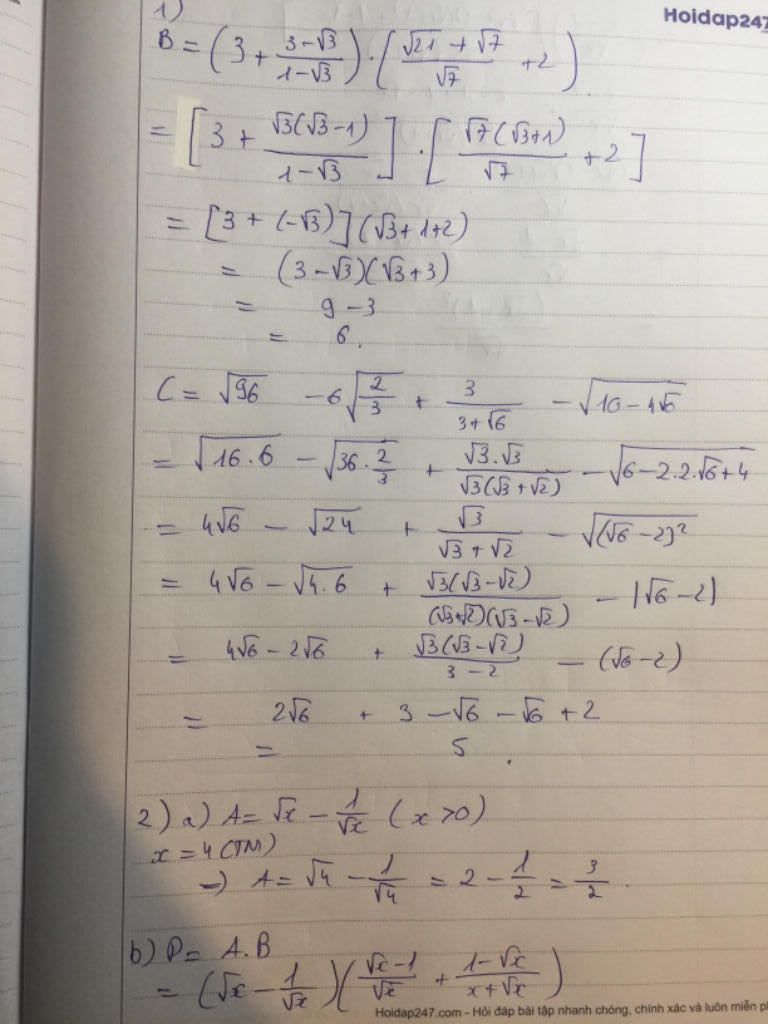 Hoidap247
1)
B = (3 + (3-√3)/(1-√3)) · ((√21 + √7)/√7 + 2).
= [3 + √3(√3-1)/(1-√3)] · [√7(√3+1)/√7 + 2]
= [3 + (-√3)](√3 + 1 + 2)
= (3 - √3)(√3 + 3)
= 9 - 3
= 6.
C = √96 - 6√(2/3) + 3/(3+√6) - √(10 - 4√6)
= √(16.6) - √(36·2/3) + √3.√3/(√3(√3+√2)) - √(6-2.2.√6+4)
= 4√6 - √24 + √3/(√3+√2) - √((√6-2)²)
= 4√6 - √(4.6) + √3(√3-√2)/((√3+√2)(√3-√2)) - |√6-2|
= 4√6 - 2√6 + √3(√3-√2)/(3-2) - (√6-2)
= 2√6 + 3 - √6 - √6 + 2
= 5.
2) a) A = √x - 1/√x (x>0)
x = 4 (TM)
=) A = √4 - 1/√4 = 2 - 1/2 = 3/2.
b) P = A.B
= (√x - 1/√x)((√x-1)/√x + (1-√x)/(x+√x))
Hoidap247.com - Hỏi đáp bài tập nhanh chóng, chính xác và luôn miễn ph